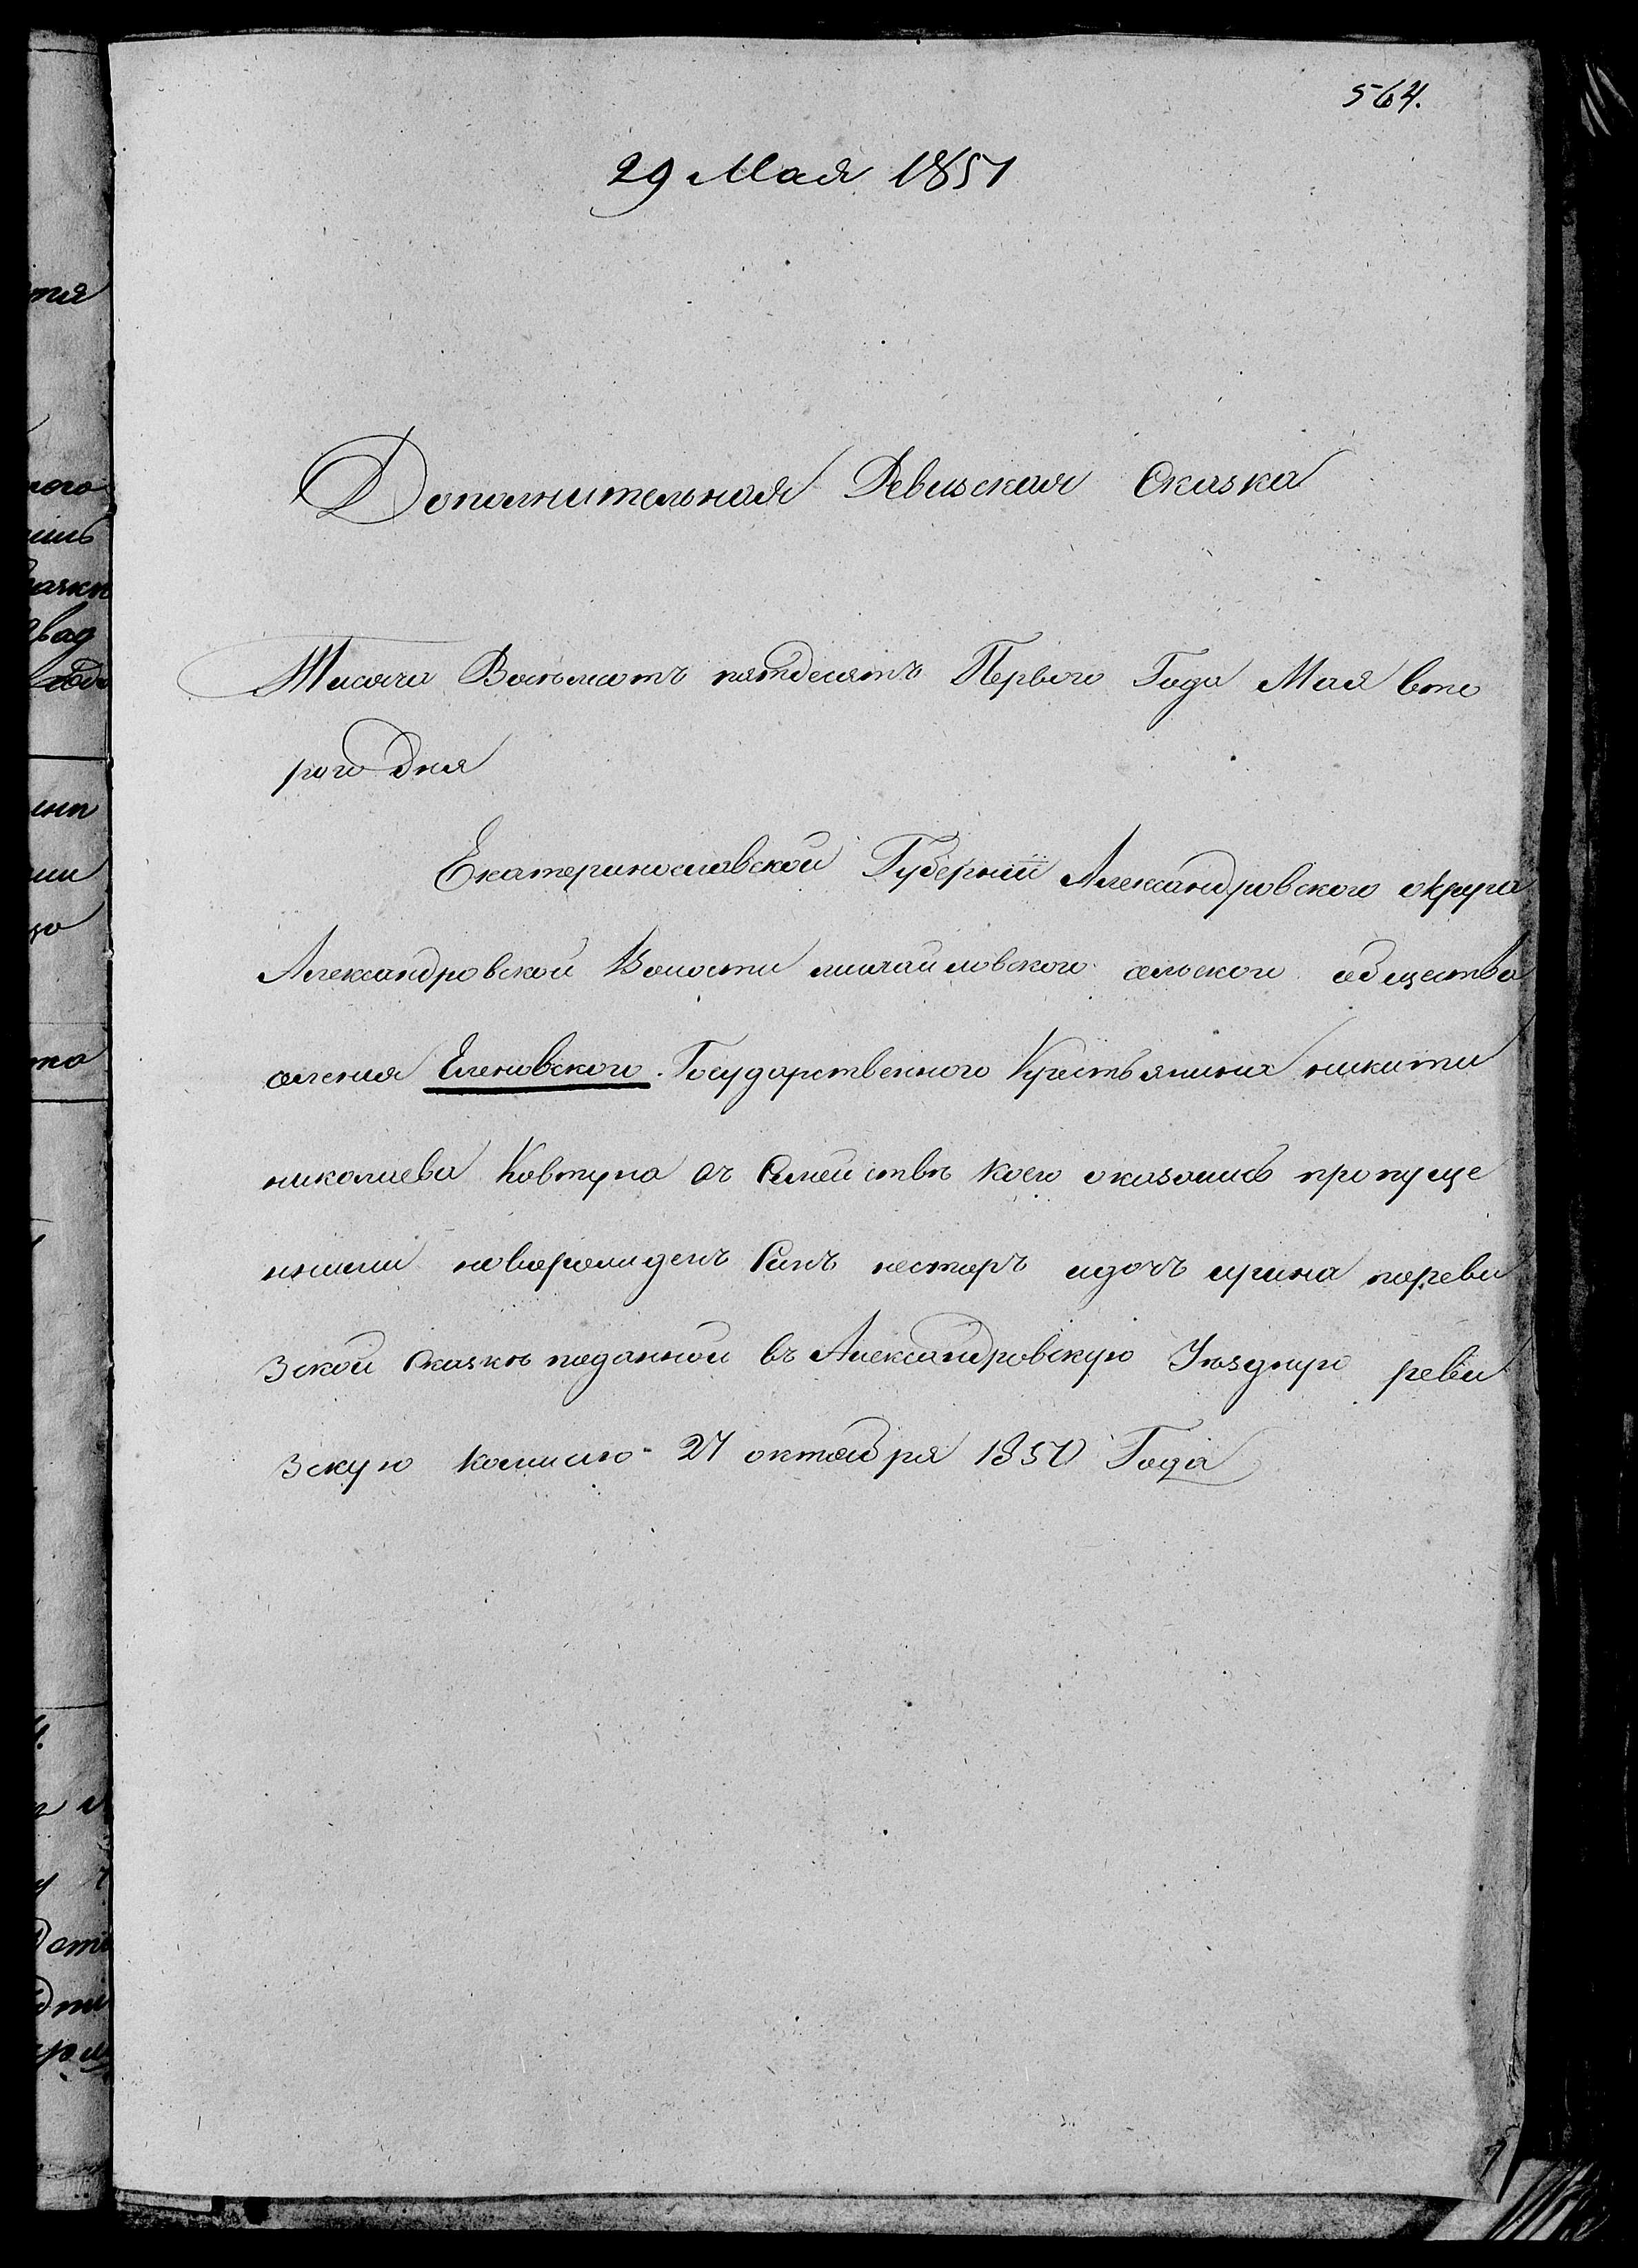 564.
29 Мая 1851
Дополнительная Ревизская Сказка
Тысяча Восемсотъ пятдесятъ Перваго Года Мая вто
рого дня
Екатеринославской Губерніи Александровского округа
Александровской Волости михайловского сельского общества
селения Еленовского. Государственного Крестьянина никиты
николаева Ковтуна въ Семействѣ коего оказались пропуще
ными новорожденъ Синъ несторъ идочъ иринапореви
зской Сказкѣ поданной въ Александровскую Уѣздную реви
зскую комисию 27 октября 1850 Года